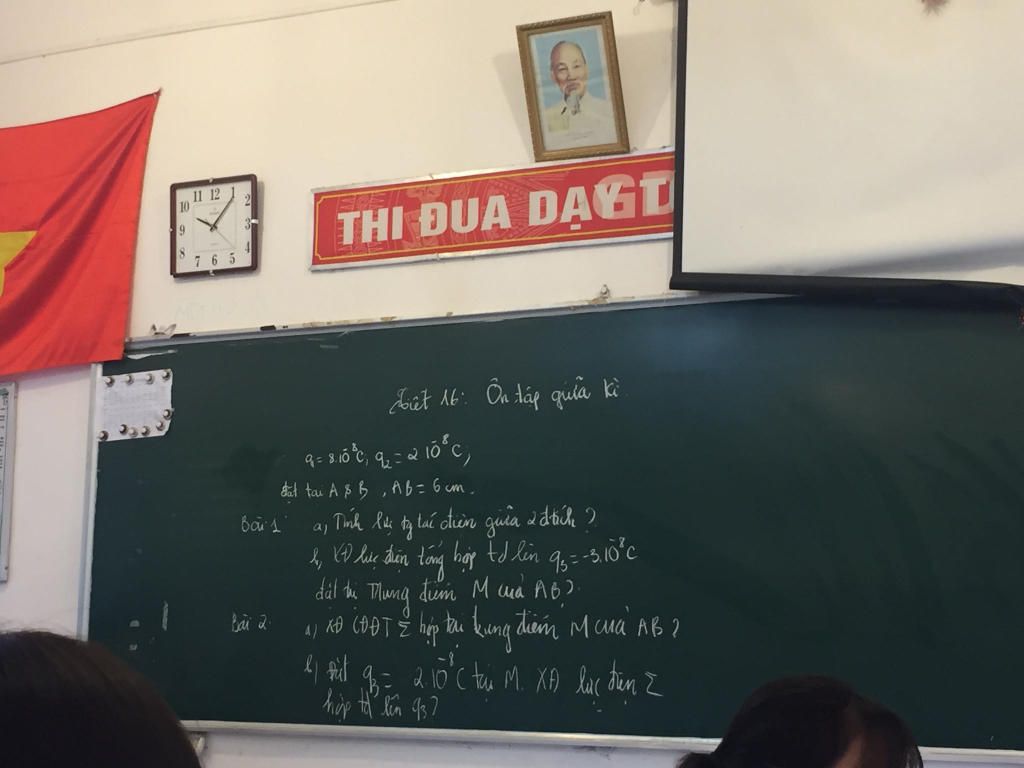 THI ĐUA DẠY T
GD
11 12 1
10 2
9 3
8 4
7 6 5
Tiết 16: Ôn tập giữa kì.
q₁ = 8.10⁻⁸C; q₂ = 2 10⁻⁸ C,
đặt tại A & B , AB = 6 cm.
Bài 1 a, Tính lực tg tác điện giữa 2 đtích ?
b, XĐ lực điện tổng hợp td lên q₃ = -3.10⁻⁸C
đặt tại trung điểm M của AB?
Bài 2. a, XĐ CĐĐT Σ hợp tại trung điểm M của AB ?
b, Đặt q₃ = 2.10⁻⁸C tại M. XĐ lực điện Σ
hợp td lên q₃?